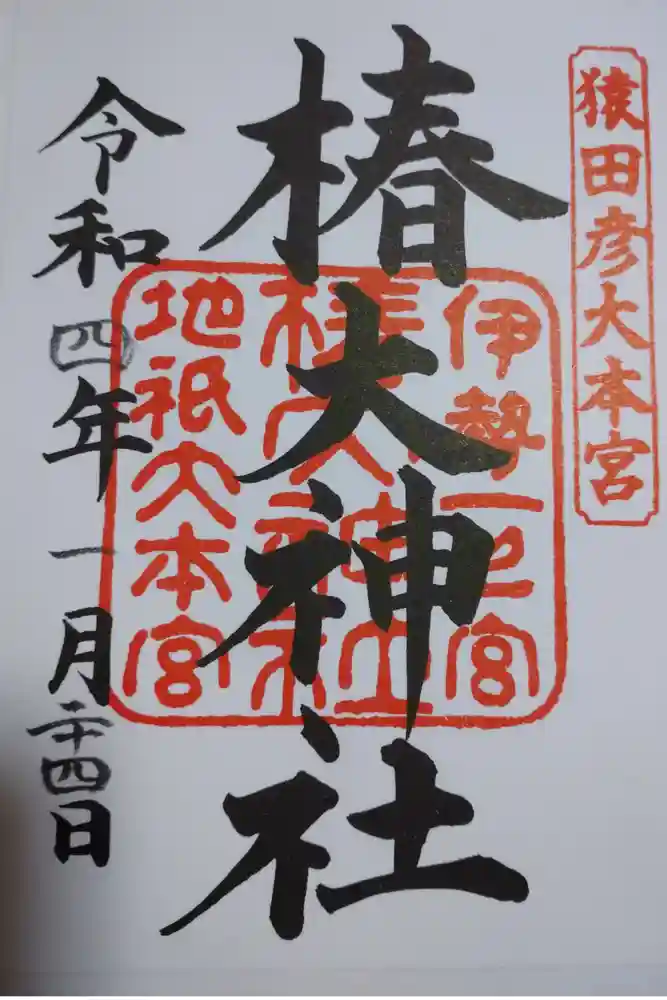 猿田彦大本宮
椿大神社
伊勢一之宮
椿大神社
地祇大本宮
令和四年一月二十四日